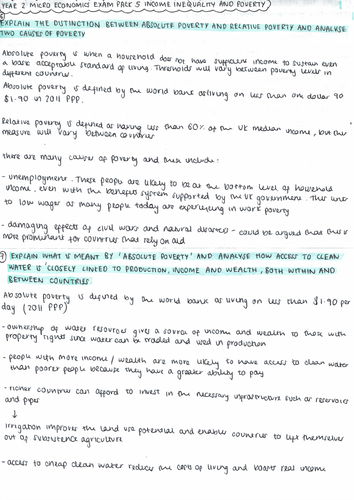 YEAR 2 MICRO ECONOMICS EXAM PACK 5 INCOME INEQUALITY AND POVERTY
EXPLAIN THE DISTINCTION BETWEEN ABSOLUTE POVERTY AND RELATIVE POVERTY AND ANALYSE
TWO CAUSES OF POVERTY
Absolute poverty is when a household does not have sufficient income to sustain even
a basic acceptable standard of living. Thresholds will vary between poverty levels in
different countries.
Absolute poverty is defined by the world bank as living on less than one dollar 90
$1.90 in 2011 PPP.
Relative poverty is defined as having less than 60% of the UK median income, but this
measure will vary between countries
there are many causes of poverty and these include:
- unemployment. These people are likely to be at the bottom level of household
income, even with the benefits system supported by the UK government. This links
to low wages as many people today are experiencing in work poverty
- damaging effects of civil wars and natural disasters - could be argued that this is
more prominent for countries that rely on aid
EXPLAIN WHAT IS MEANT BY 'ABSOLUTE POVERTY' AND ANALYSE HOW ACCESS TO CLEAN
WATER IS 'CLOSELY LINKED TO PRODUCTION, INCOME AND WEALTH, BOTH WITHIN AND
BETWEEN COUNTRIES
Absolute poverty is defined by the world bank as living on less than $1.90 per
day (2011 PPP)
- ownership of water resources gives a source of income and wealth to those with
property rights since water can be traded and used in production
- people with more income / wealth are more likely to have access to clean water
than poorer people because they have a greater ability to pay
- richer countries can afford to invest in the necessary infrastructure such as reservoirs
and pipes
↓
irrigation improves the land use potential and enables countries to lift themselves
out of subsistence agriculture
- access to cheap clean water reduces the costs of living and boosts real income